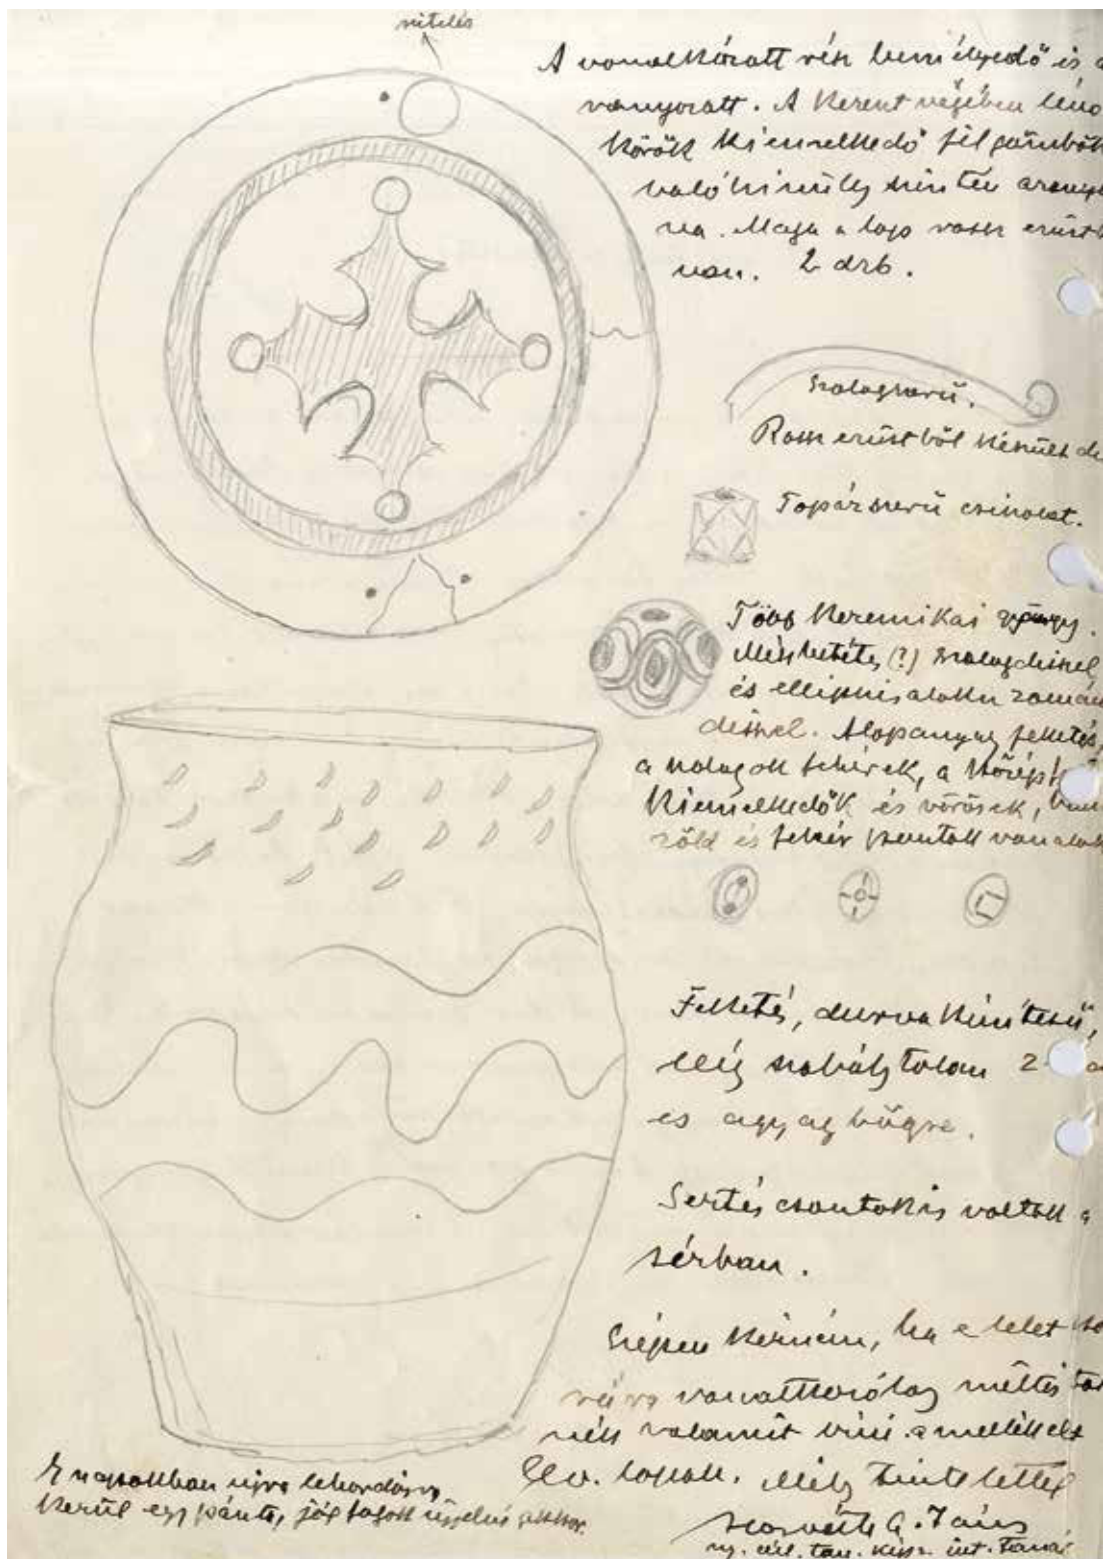 sütelés
A vonalkázott rész bemélyedő és a
ranyozott. A kereszt végében lévő
körök kiemelkedő félgömbök
valószínűleg szintén aranyo
va. Maga a lap rossz ezüstb
van. 2 drb.
Szalagszerű.
Rossz ezüstből készült de
Topázszerű csiszolat.
Több keremikai gyöngy.
Mészbetétes (?) szalagdísszel
és ellipszisalaku zomán
dísszel. Alapanyag feketés,
a szalagok fehérek, a közép
kiemelkedők és vörösek,
zöld és fehér pontok vonalak
Feketés, durva kivitelű,
elég szabálytalan 2
es agyag bögre.
Sertés csontok is voltak a
sírban.
Szépen kérném, ha e lelet
vonatkozólag méltóz
nék valamit írni a mellékelt
lev. lapon. Mély tisztelettel
Horváth A. János
E napokban ujra lehordásra
kerül egy pánts, jól fogok ügyelni akkor.